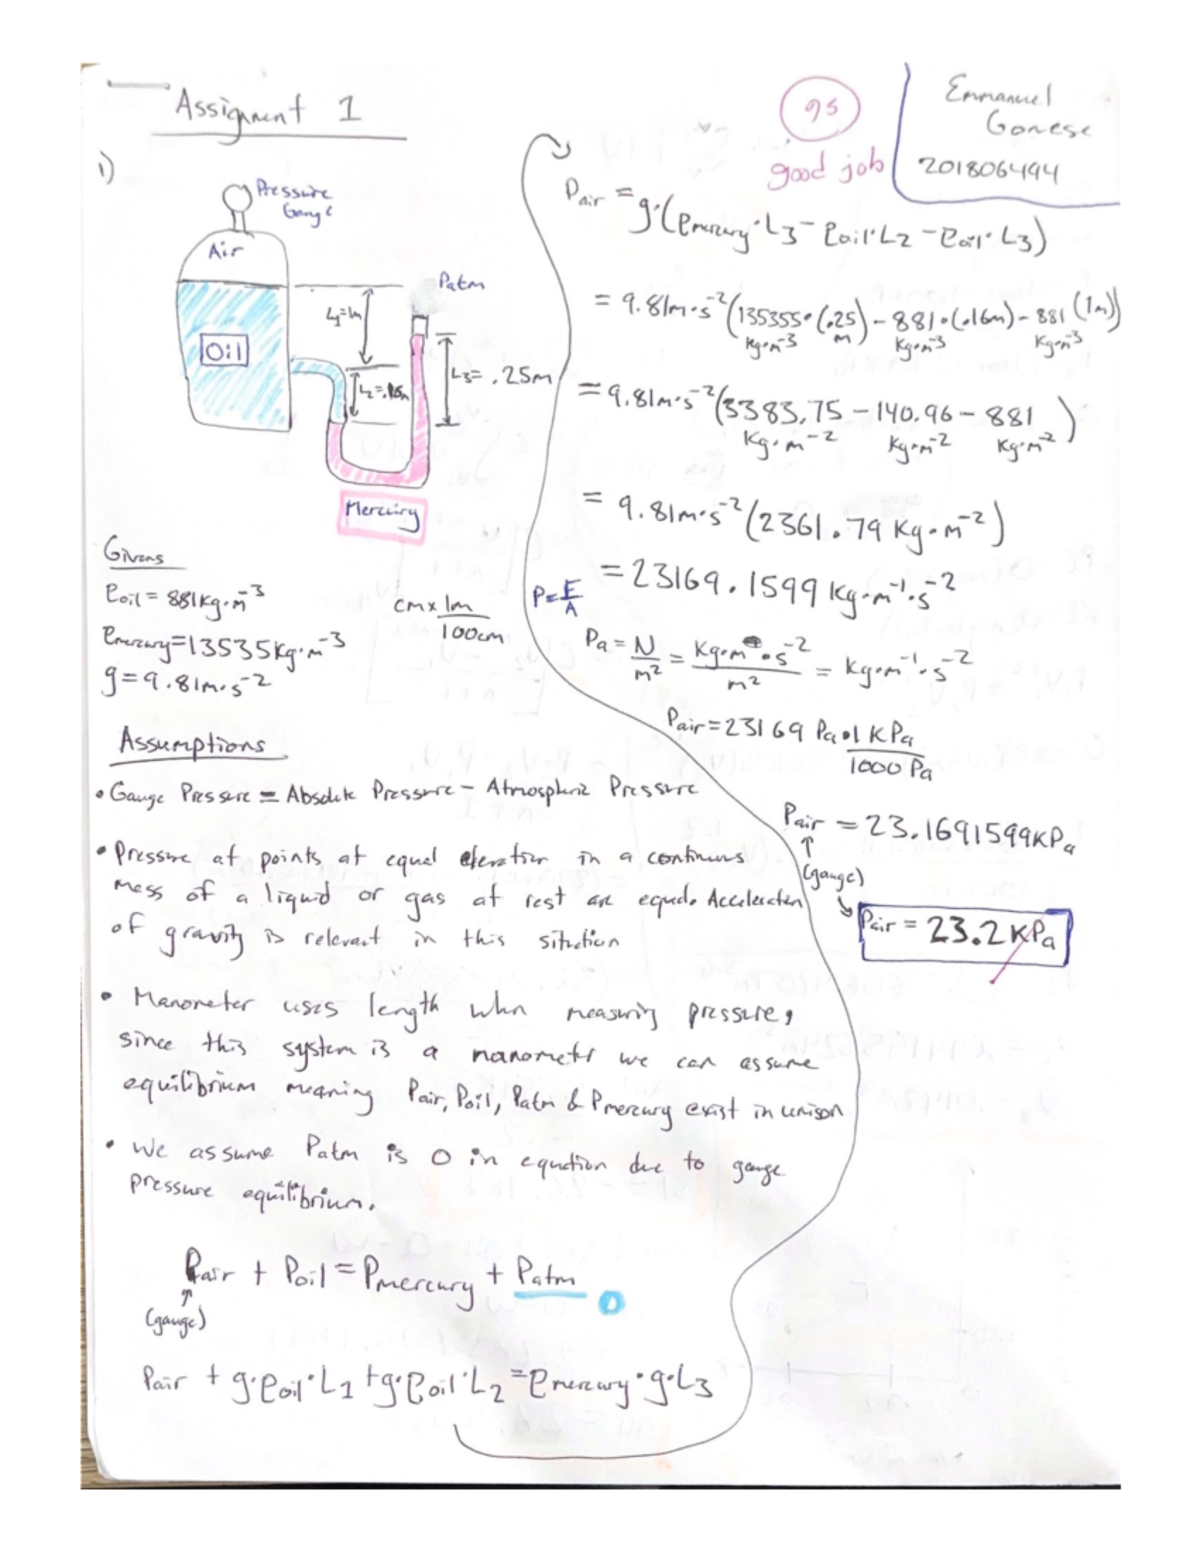 Assignment 1
95
good job
Emmanuel
Gonese
201806494
1)
Pressure
Gauge
Air
Patm
L1=1m
Oil
L2=.16m
L3= .25m
Mercury
Givens
ρoil = 881kg·m^-3
ρmercury=13535kg·m^-3
g=9.81m·s^-2
cm x 1m/100cm
Assumptions
• Gauge Pressure = Absolute Pressure - Atmospheric Pressure
• Pressure at points at equal elevation in a continuous
mass of a liquid or gas at rest are equal. Acceleration
of gravity is relevant in this situation
• Manometer uses length when measuring pressure,
since this system is a manometer we can assume
equilibrium meaning Pair, Poil, Patm & Pmercury exist in unison
• We assume Patm is 0 in equation due to gauge
pressure equilibrium.
Pair + Poil = Pmercury + Patm 0
(gauge)
Pair + g·ρoil·L1 +g·ρoil·L2 = ρmercury·g·L3
Pair = g·(ρmercury·L3 - ρoil·L2 - ρoil·L3)
= 9.81m·s^-2 (135355·(.25) - 881·(.16m) - 881 (1m))
kg·m^-3 m kg·m^-3 kg·m^-3
= 9.81m·s^-2 (3383.75 - 140.96 - 881)
kg·m^-2 kg·m^-2 kg·m^-2
= 9.81m·s^-2 (2361.79 kg·m^-2)
= 23169.1599 kg·m^-1·s^-2
P=F/A
Pa = N/m^2 = kg·m·s^-2/m^2 = kg·m^-1·s^-2
Pair = 23169 Pa·1 KPa/1000 Pa
Pair = 23.1691599KPa
(gauge)
Pair = 23.2 KPa